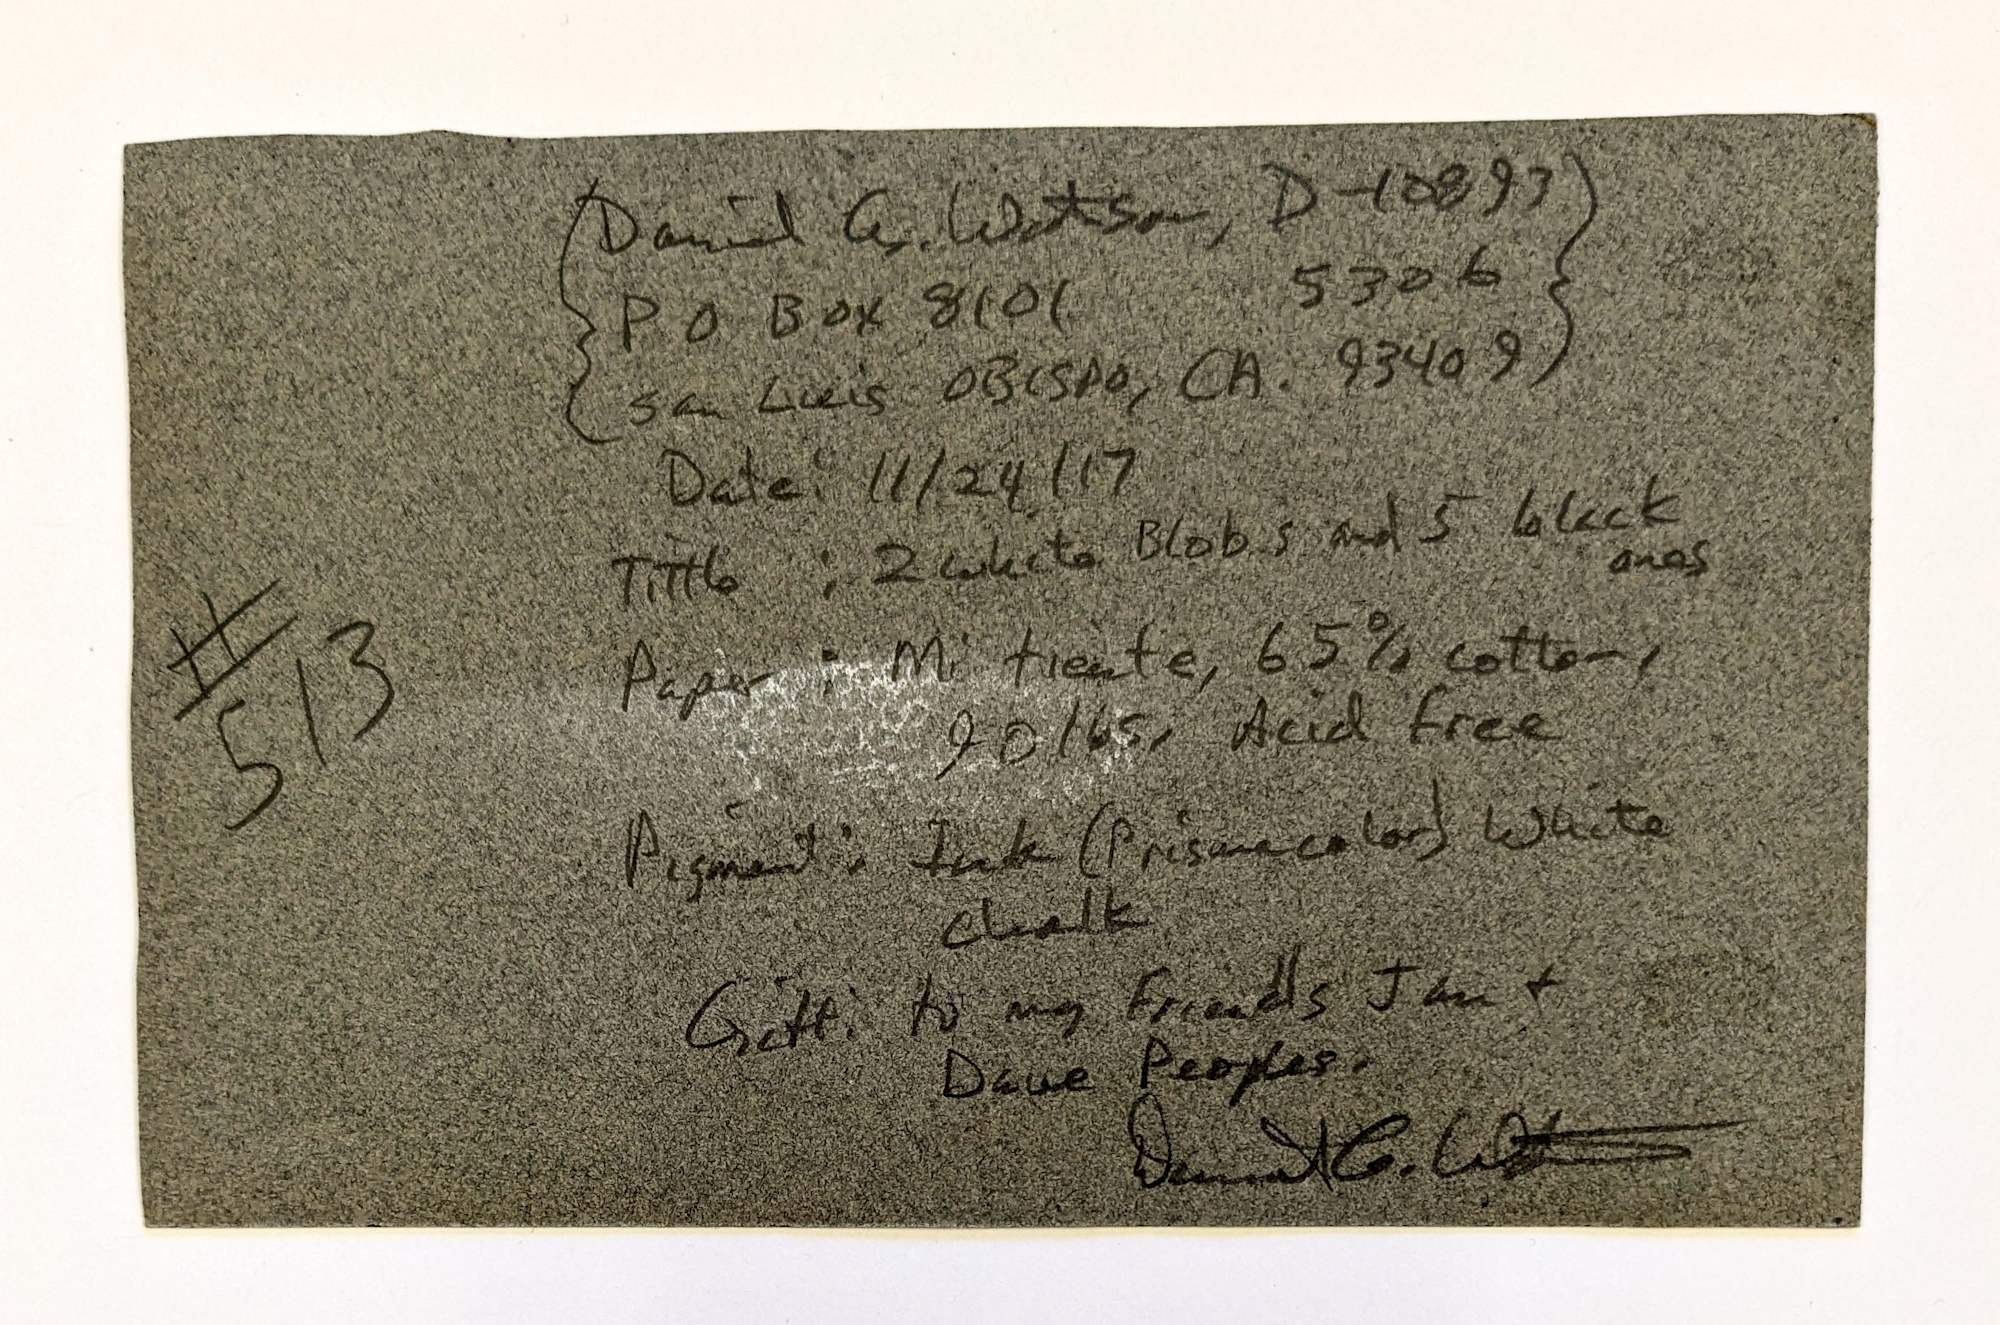 Daniel G. Watson, D-10893
PO Box 8101 5306
San Luis OBISPO, CA. 93409
Date: 11/24/17
Title : 2 white Blobs and 5 black
ones
# 513
Paper : Mi tiente, 65% cotton,
90 lbs, Acid free
Pigment: Ink (Prismacolor) White
chalk
Gift: to my Friends Jan +
Dave Peoples.
Daniel G. Watson